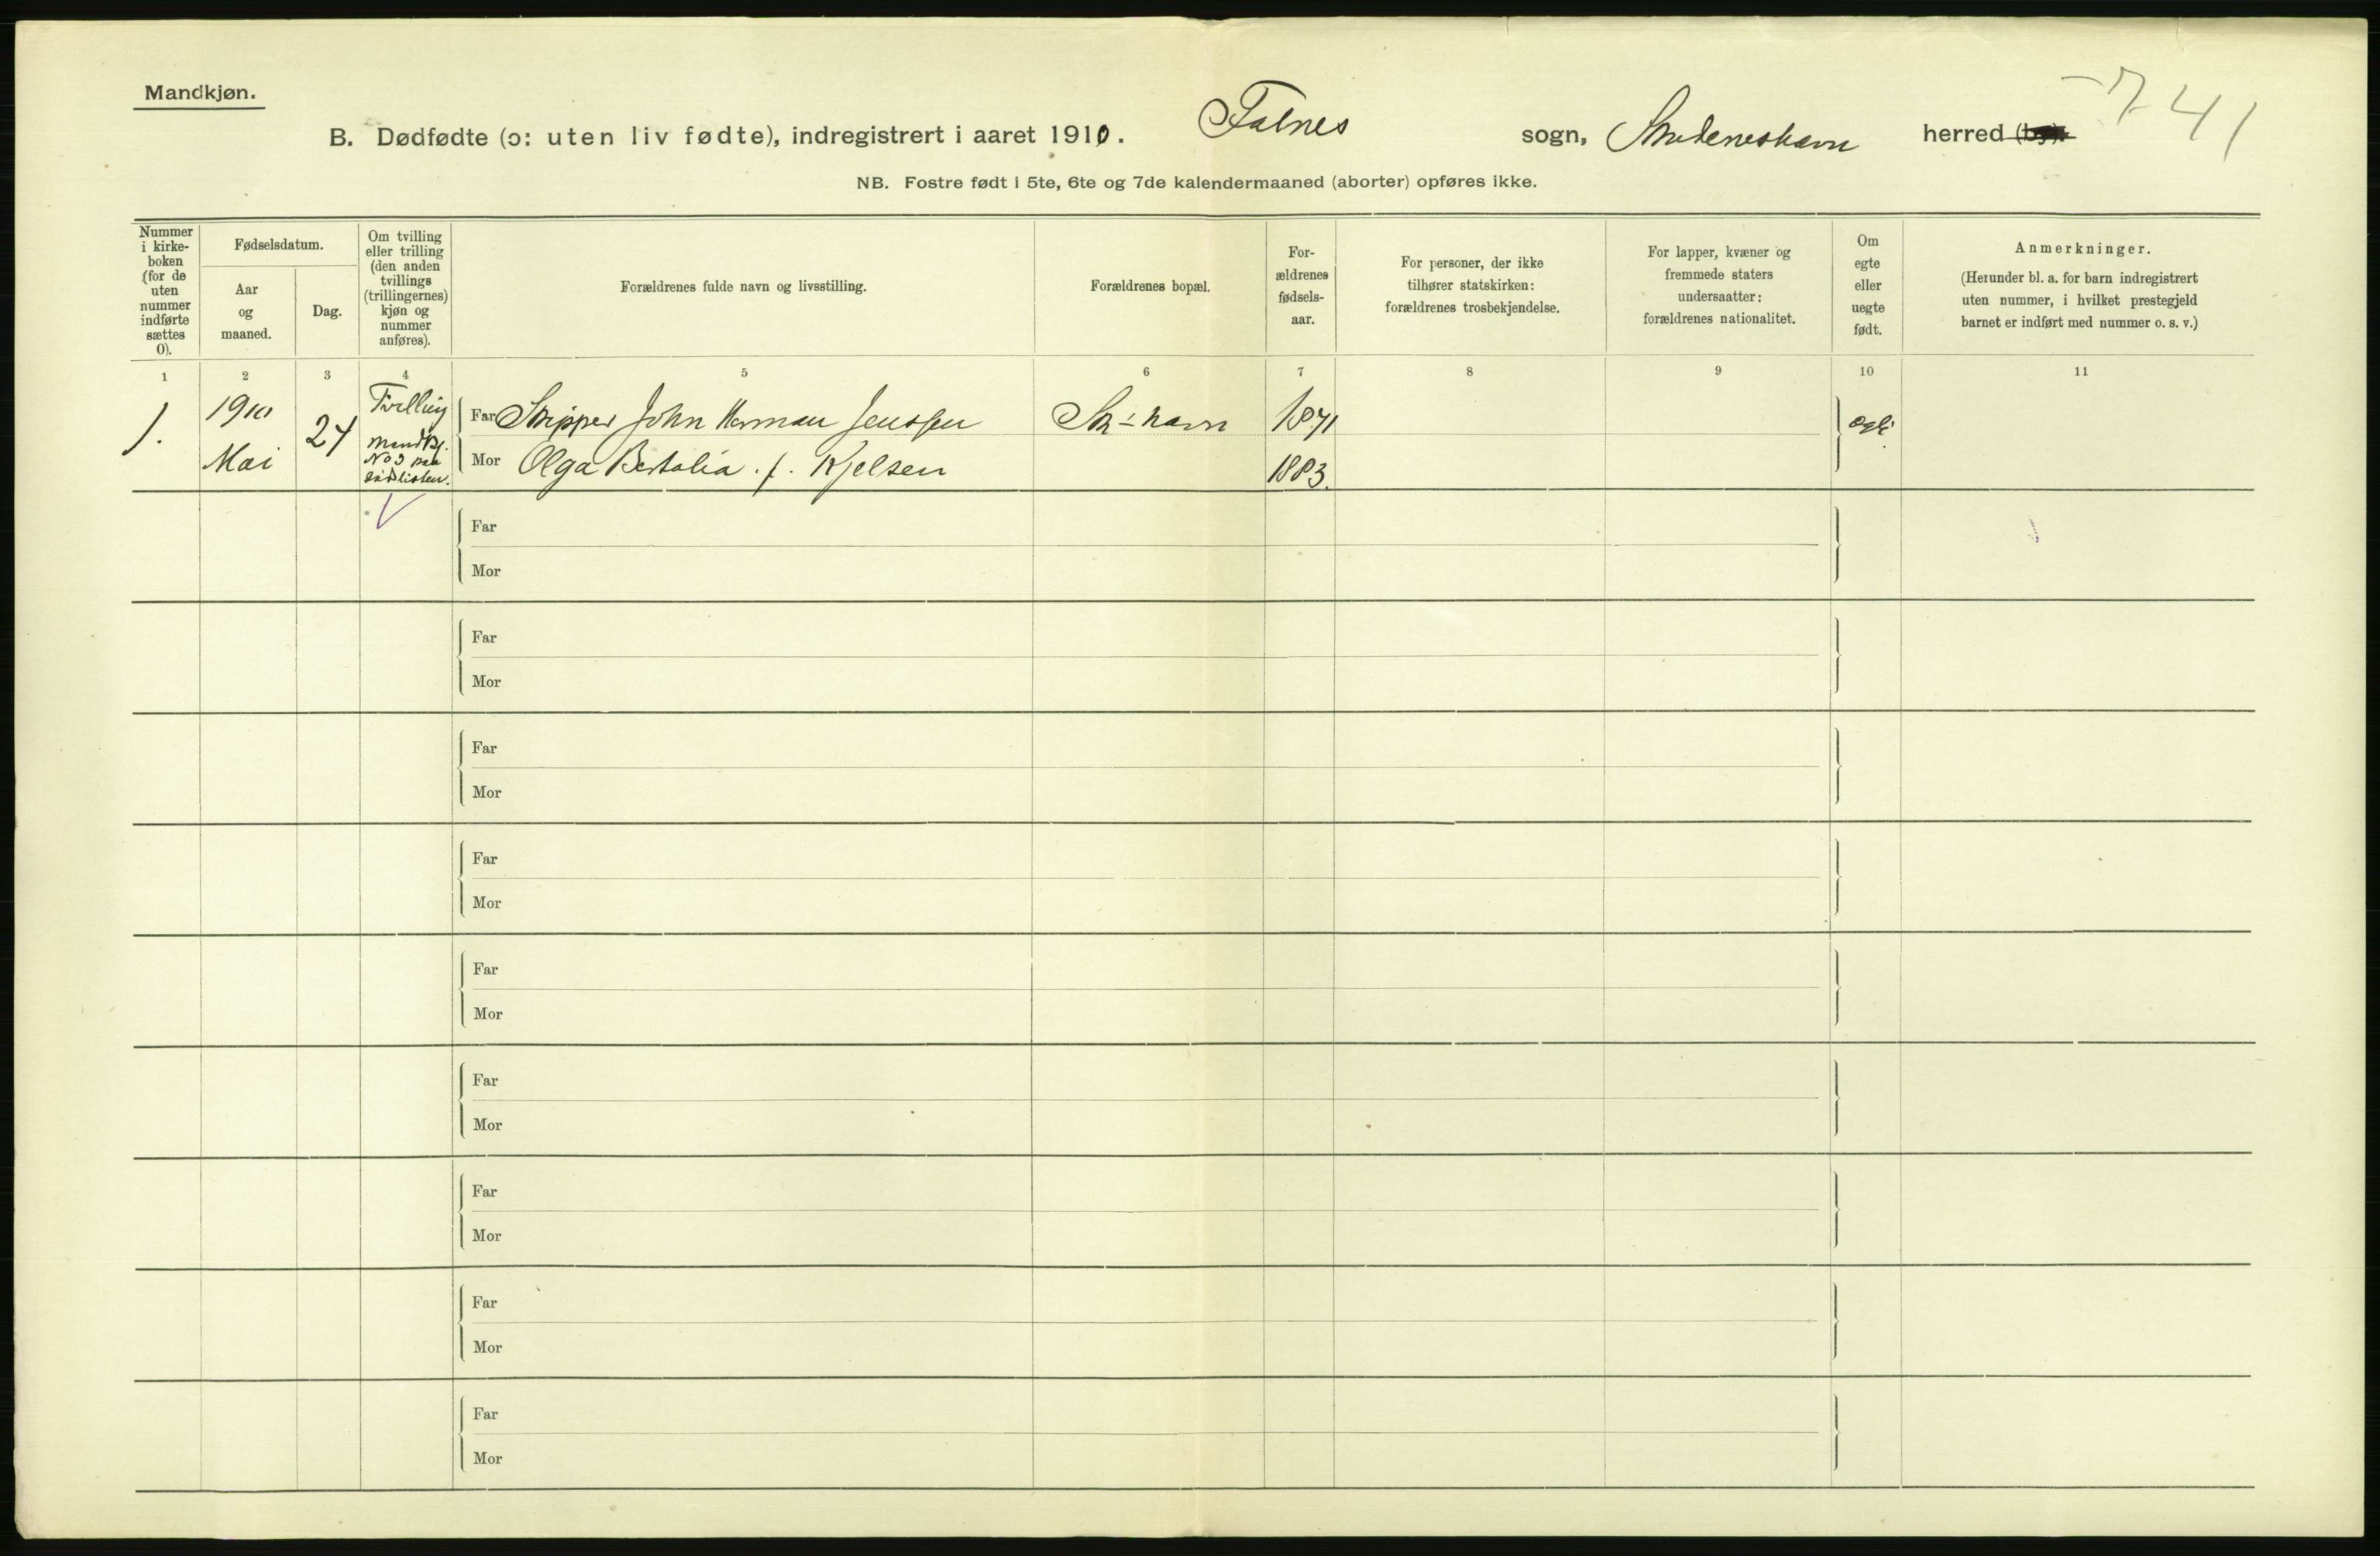 Mandkjøn.
B. Dødfødte (ɔ: uten liv fødte), indregistrert i aaret 1910. Falnes sogn, Skudeneshavn herred (by).
741
NB. Fostre født i 5te, 6te og 7de kalendermaaned (aborter) opføres ikke.
Nummer
i kirke-
boken
(for de
uten
nummer
indførte
sættes
0).
Fødselsdatum.
Aar
og
maaned.
Dag.
Om tvilling
eller trilling
(den anden
tvillings
(trillingernes)
kjøn og
nummer
anføres).
Forældrenes fulde navn og livsstilling.
Forældrenes bopæl.
For-
ældrenes
fødsels-
aar.
For personer, der ikke
tilhører statskirken:
forældrenes trosbekjendelse.
For lapper, kvæner og
fremmede staters
undersaatter:
forældrenes nationalitet.
Om
egte
eller
uegte
født.
Anmerkninger.
(Herunder bl. a. for barn indregistrert
uten nummer, i hvilket prestegjeld
barnet er indført med nummer o. s. v.)
1 2 3 4 5 6 7 8 9 10 11
1.
1910
Mai
24
Tvilling
Mandkj.
No 3 paa
Far Skipper John Herman Jenssen
Mor Olga Bertalia. f. Kjelsen
Sk-havn
1871
1883.
egte
Far
Mor
Far
Mor
Far
Mor
Far
Mor
Far
Mor
Far
Mor
Far
Mor
Far
Mor
Far
Mor